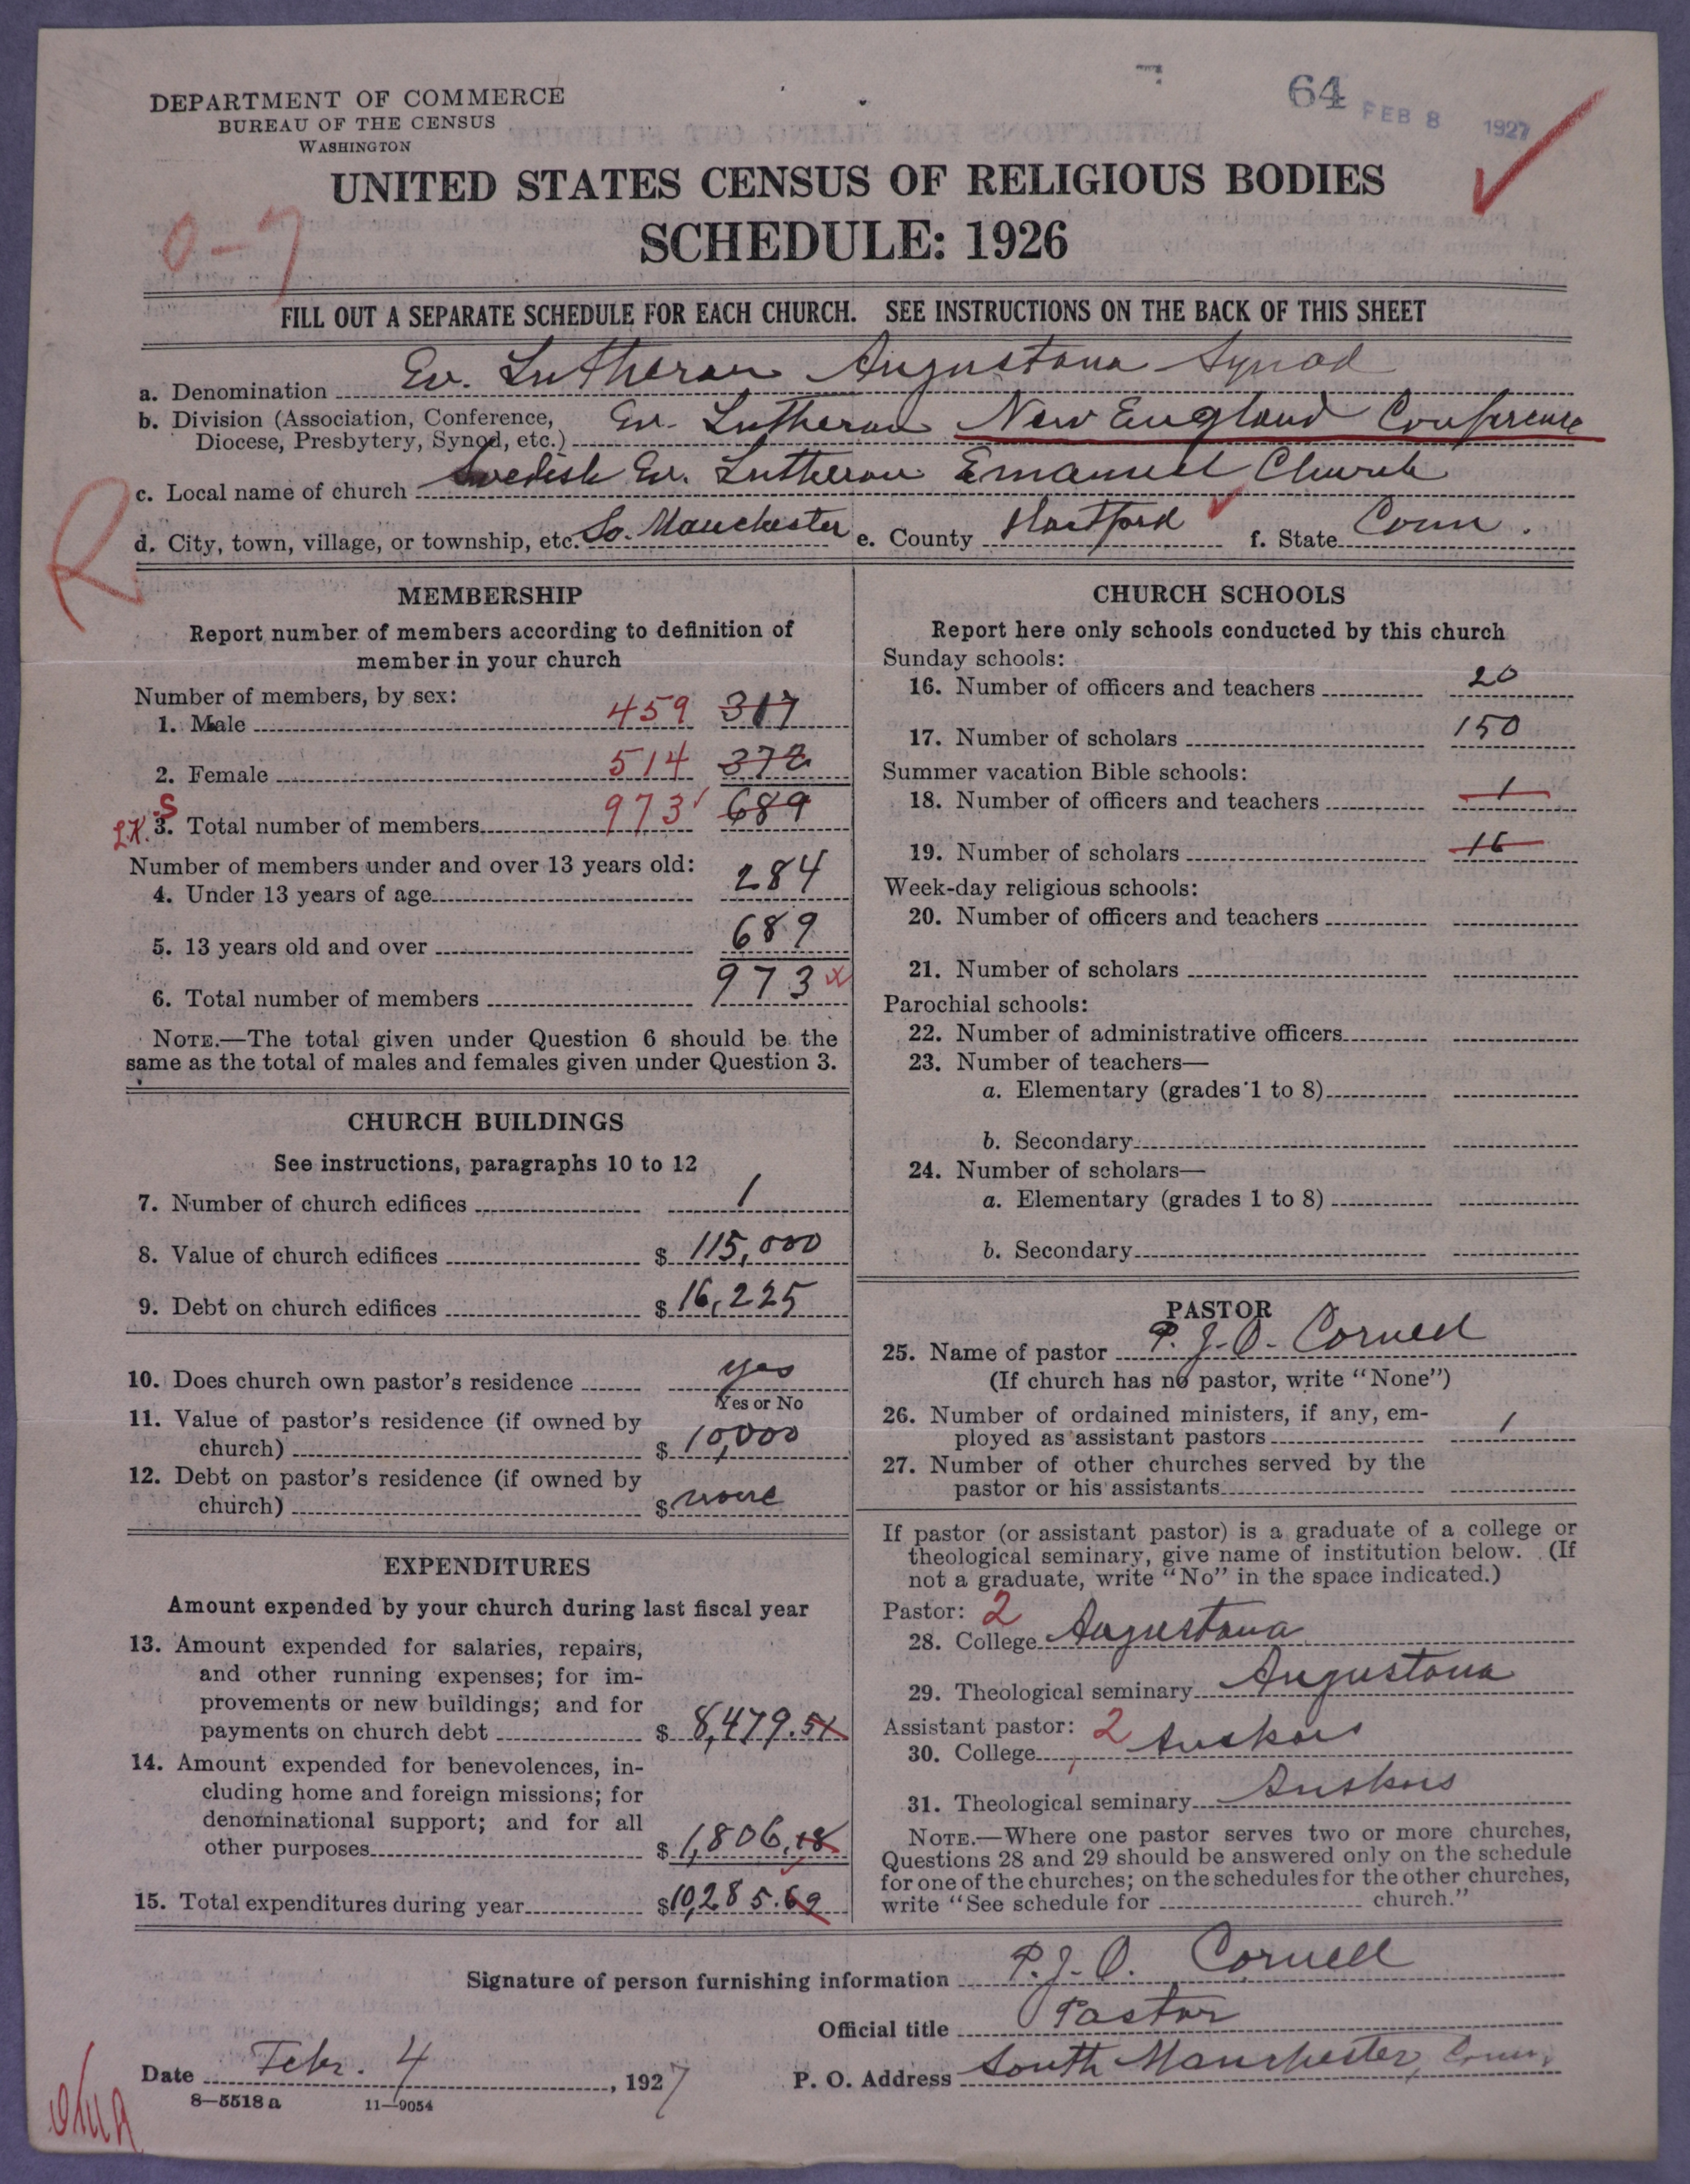 64 FEB 8 1927
DEPARTMENT OF COMMERCE
BUREAU OF THE CENSUS
WASHINGTON
UNITED STATES CENSUS OF RELIGIOUS BODIES
0-7
SCHEDULE: 1926
FILL OUT A SEPARATE SCHEDULE FOR EACH CHURCH. SEE INSTRUCTIONS ON THE BACK OF THIS SHEET
a. Denomination Ev. Lutheran Augustana Synod
b. Division (Association, Conference, Diocese, Presbytery, Synod, etc.) Ev. Lutheran New England Conference
c. Local name of church Swedish Ev. Lutheran Emanuel Church
d. City, town, village, or township, etc. So. Manchester e. County Hartford f. State Conn.
R
MEMBERSHIP
Report number of members according to definition of
member in your church
Number of members, by sex:
1. Male 459 317
2. Female 514 372
S
LK. 3. Total number of members 973 689
Number of members under and over 13 years old:
4. Under 13 years of age 284
5. 13 years old and over 689
6. Total number of members 973
NOTE.—The total given under Question 6 should be the
same as the total of males and females given under Question 3.
CHURCH BUILDINGS
See instructions, paragraphs 10 to 12
7. Number of church edifices 1
8. Value of church edifices $ 115,000
9. Debt on church edifices $ 16,225
10. Does church own pastor's residence yes
Yes or No
11. Value of pastor's residence (if owned by
church) $ 10,000
12. Debt on pastor's residence (if owned by
church) $ none
EXPENDITURES
Amount expended by your church during last fiscal year
13. Amount expended for salaries, repairs,
and other running expenses; for im-
provements or new buildings; and for
payments on church debt $ 8,479.51
14. Amount expended for benevolences, in-
cluding home and foreign missions; for
denominational support; and for all
other purposes $ 1,806.18
15. Total expenditures during year $ 10,285.69
CHURCH SCHOOLS
Report here only schools conducted by this church
Sunday schools:
16. Number of officers and teachers 20
17. Number of scholars 150
Summer vacation Bible schools:
18. Number of officers and teachers 1
19. Number of scholars 16
Week-day religious schools:
20. Number of officers and teachers
21. Number of scholars
Parochial schools:
22. Number of administrative officers
23. Number of teachers—
a. Elementary (grades 1 to 8)
b. Secondary
24. Number of scholars—
a. Elementary (grades 1 to 8)
b. Secondary
PASTOR
25. Name of pastor P. J. O. Cornell
(If church has no pastor, write "None")
26. Number of ordained ministers, if any, em-
ployed as assistant pastors 1
27. Number of other churches served by the
pastor or his assistants
If pastor (or assistant pastor) is a graduate of a college or
theological seminary, give name of institution below. (If
not a graduate, write "No" in the space indicated.)
Pastor: 2
28. College Augustana
29. Theological seminary Augustana
Assistant pastor: 2
30. College
31. Theological seminary
NOTE.—Where one pastor serves two or more churches,
Questions 28 and 29 should be answered only on the schedule
for one of the churches; on the schedules for the other churches,
write "See schedule for church."
Signature of person furnishing information P. J. O. Cornell
Official title Pastor
Date Febr. 4, 1927 P. O. Address South Manchester, Conn.
8—5518 a 11—9054